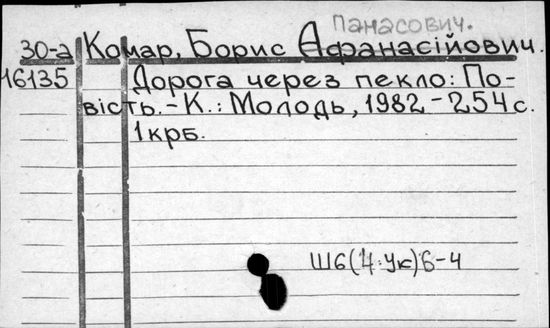 Панасович.
30-а Комар, Борис Афанасійович.
16135 Дорога через пекло: По-
вість.-К.: Молодь, 1982-254 с.
1 крб.
Ш6(4.Ук)6-4